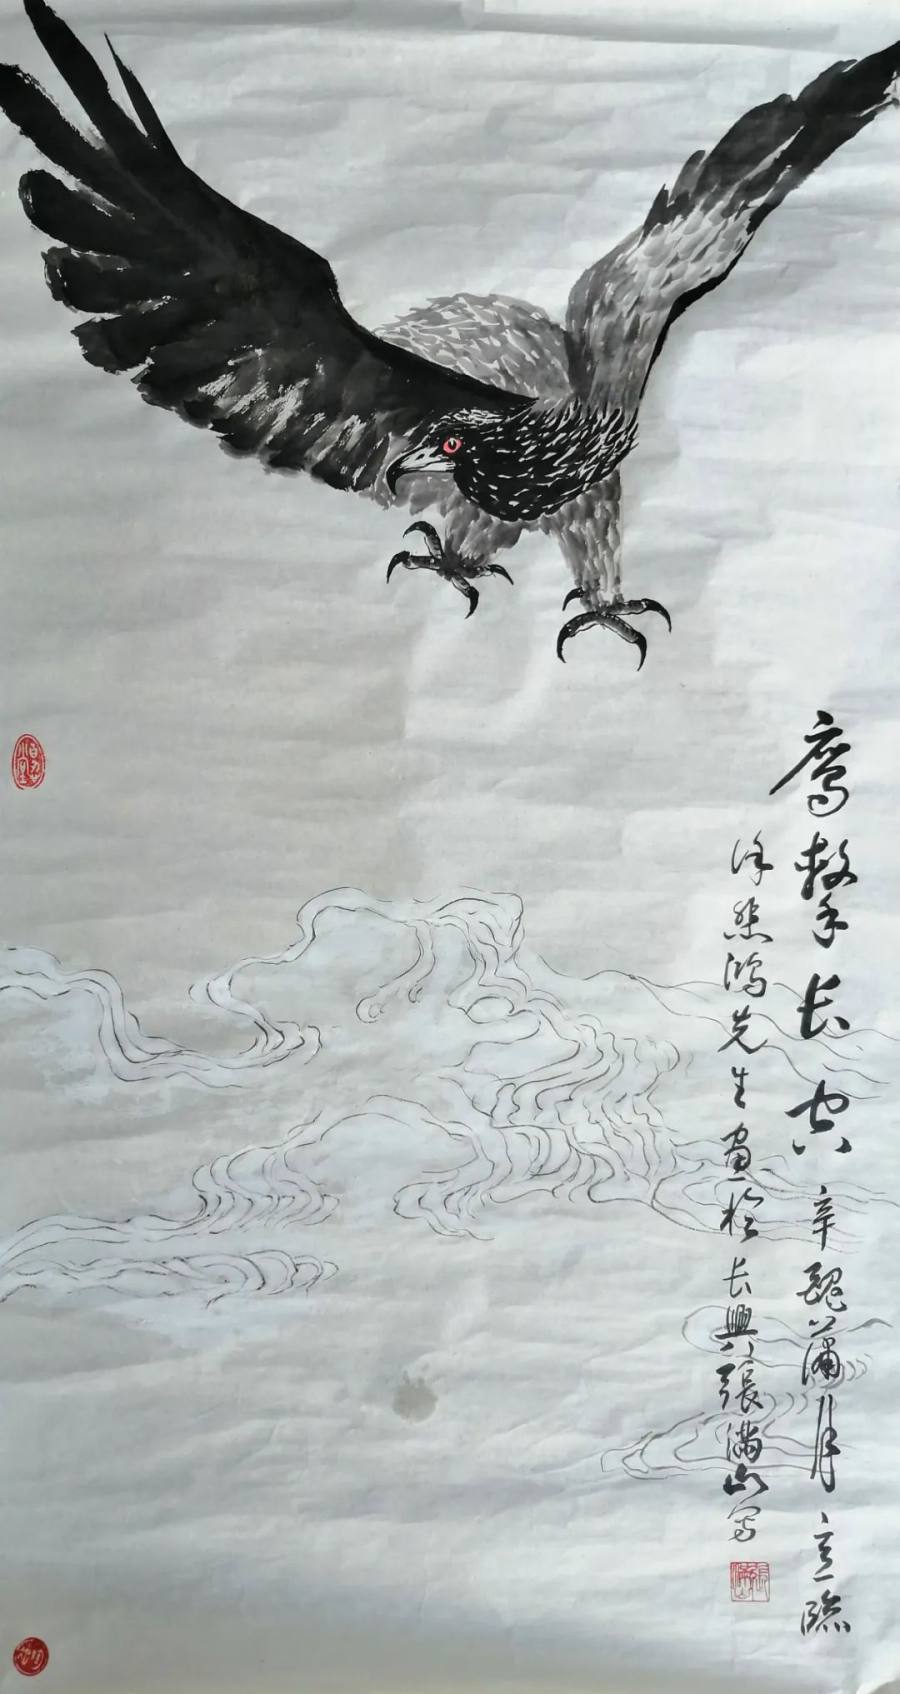 鹰击长空 辛丑蒲月 意临
徐悲鸿先生画於长興張满山写